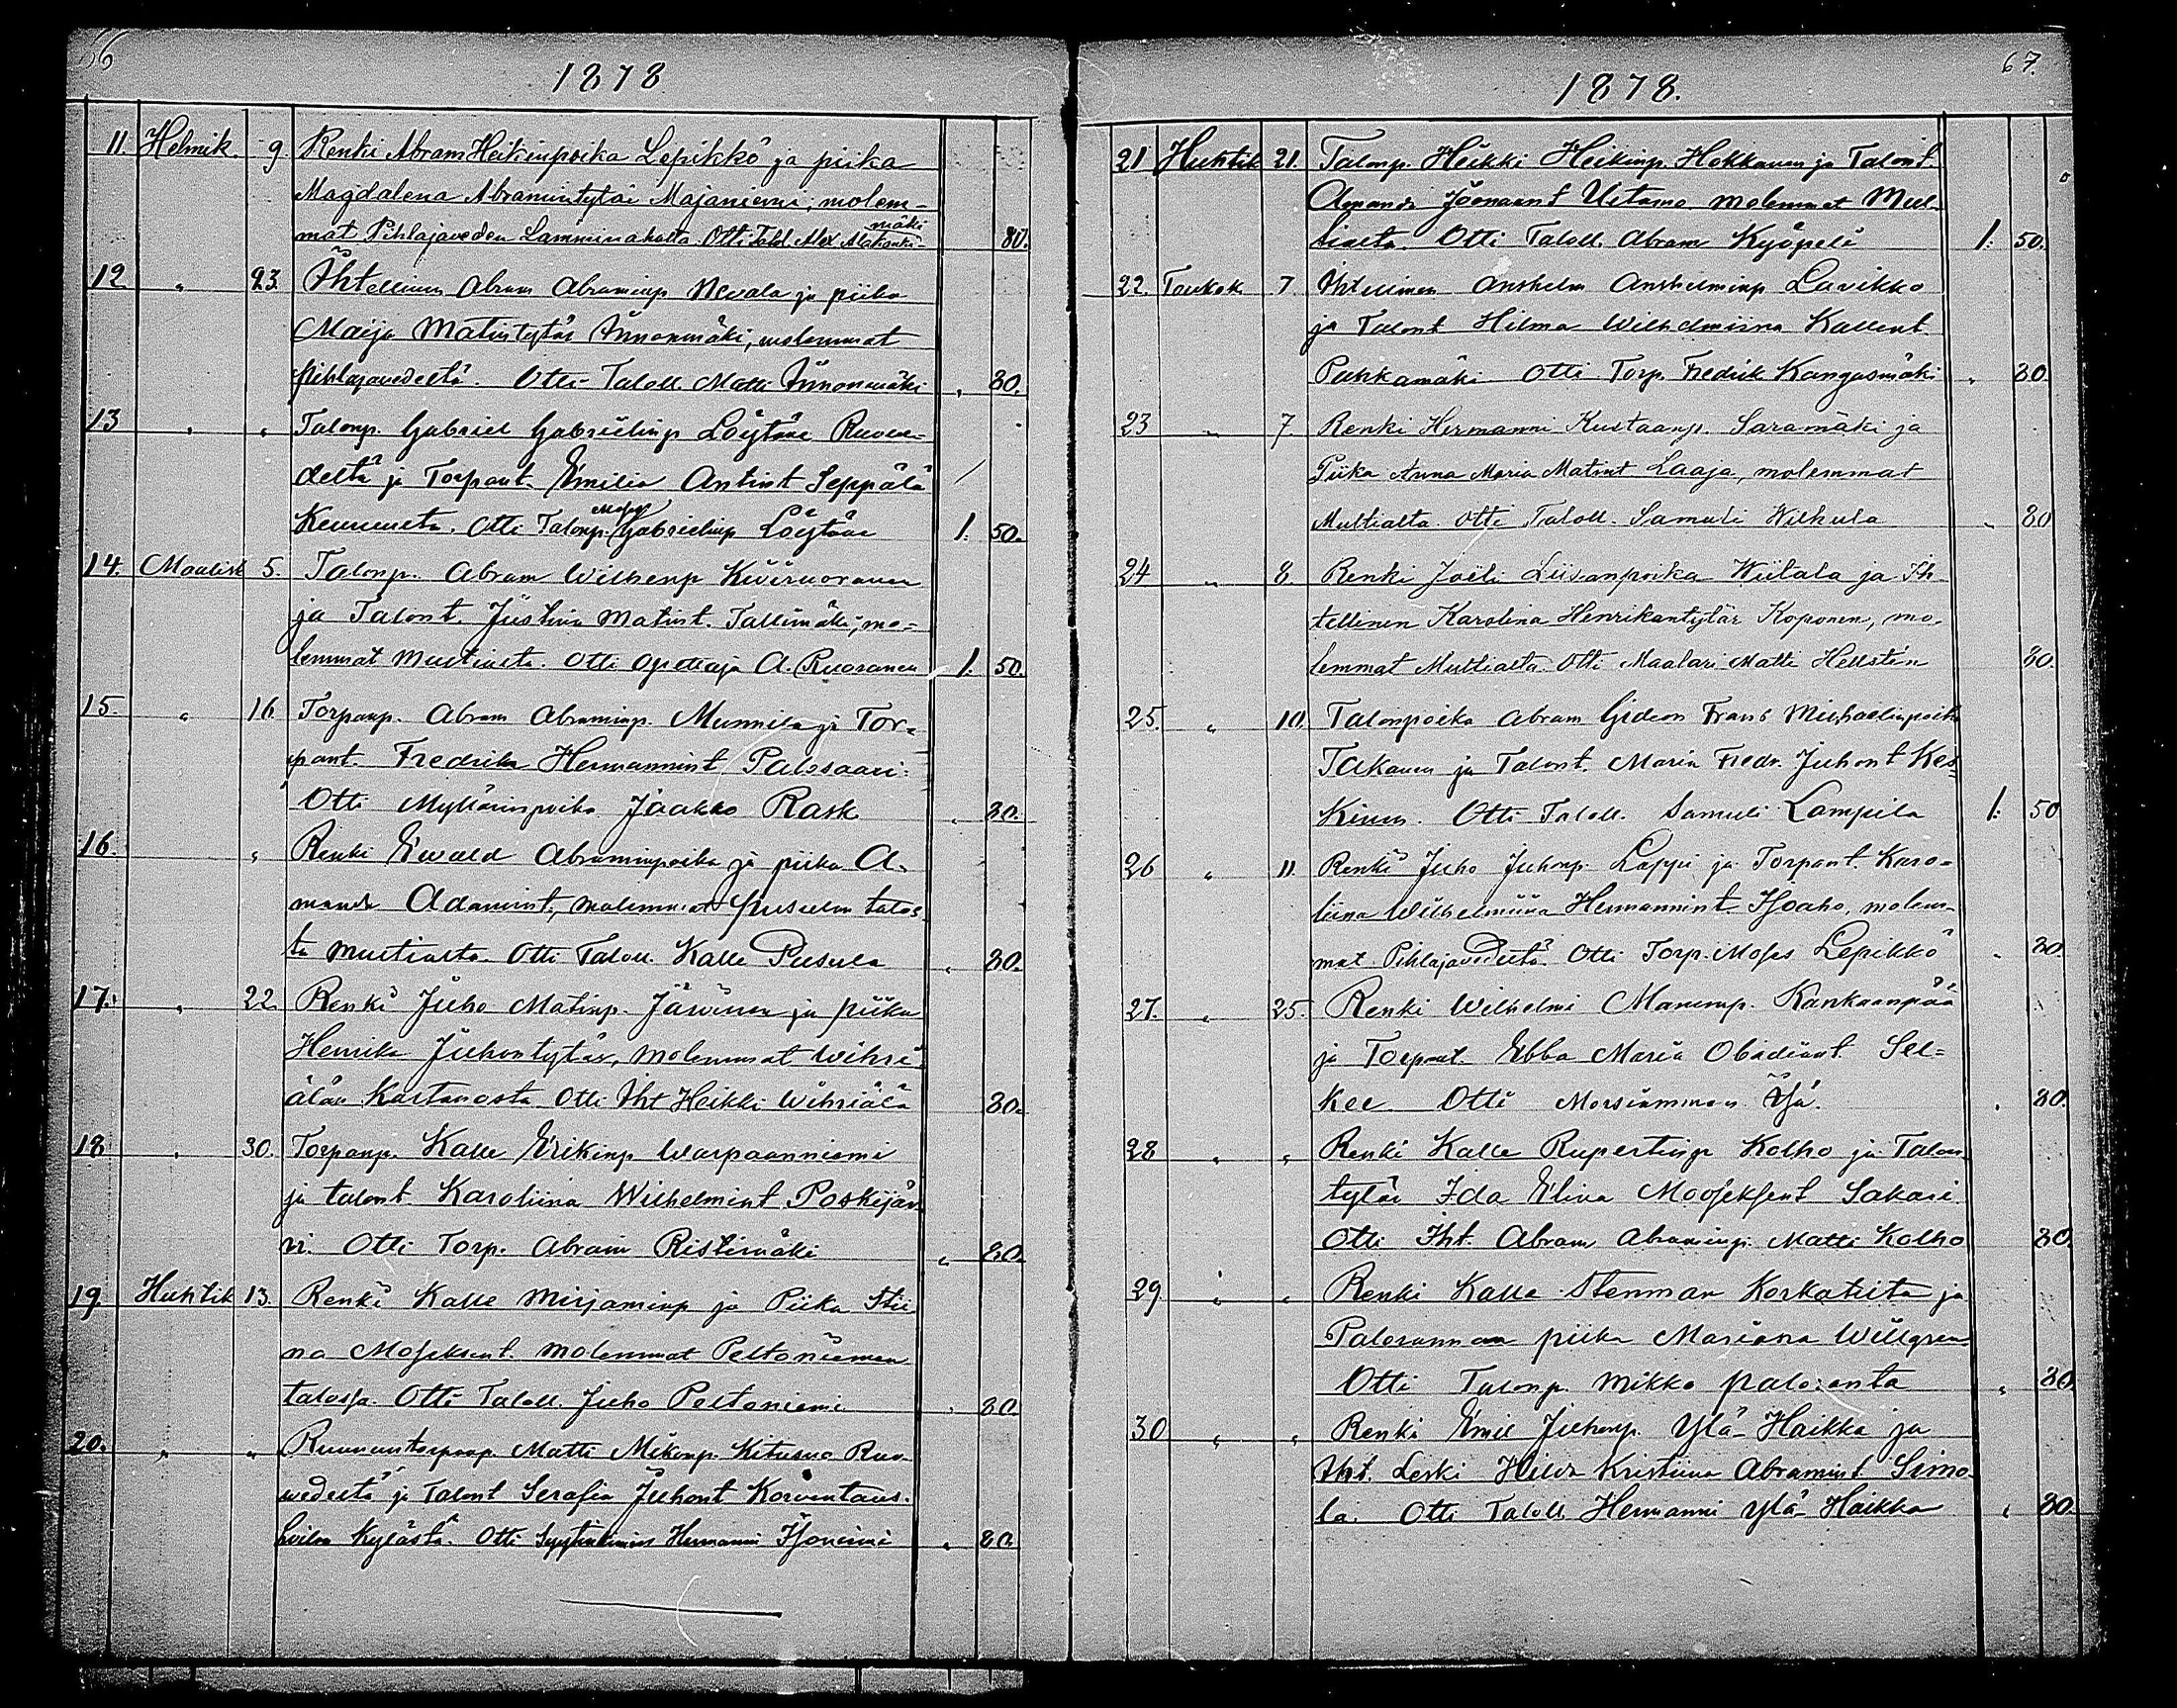 66
1878
11. Helmik. 9. Renki Abram Heikinpoika Lepikkö ja piika
Magdalena Abramintytär Majaniemi, molem-
mäki
mat Pihlajaveden Lamminaholta. Otti Talol. Alex 80.
12 " 23. Ihtellinen Abram Abraminp Nevala ja piika
Maija Matintytär Iinonmäki, molemmat
pihlajavedeltä. Otti Taloll Matti Iinonmäki " 80.
13 " " Talonp. Gabriel Gabrielinp Löytäne Ruove-
deltä ja Torpant. Emilia Antint Seppälä
Moses
Keuruulta. Otti Talonp. Gabrielinp Löytäne 1. 50.
14. Maalisk 5. Talonp. Abram Wilhenp Kiviruoranen
ja Talont. Justina Matint. Tallimäki, mo-
lemmat Multialta. Otti Opettaja A. Ruoranen 1. 50.
15. " 16 Torpanp. Abram Abraminp. Munnila ja Tor-
pant. Fredrika Hermannint Palosaari.
Otti Myllärinpoika Jaakko Rask " 80.
16. " Renki Ewald Abraminpoika ja piika A-
manda Adamint, molemmat Pusulan talos-
ta Multialta. Otti Taloll. Kalle Pusula " 80.
17. " 22 Renki Juho Matinp. Järvinen ja piika
Henrika Juhontytär, molemmat Wihri-
älän Kartanosta Otti Iht Heikki Wihriälä 80.
18 " 30. Torpanp. Kalle Erikinp Warpaanniemi
ja talont Karoliina Wilhelmint Poskijär-
vi. Otti Torp. Abram Ristimäki " 80.
19. Huhtik 13. Renki Kalle Mirjaminp ja Piika Stii
na Moseksent. molemmat Peltoniemen
talossa. Otti Taloll. Juho Peltoniemi " 80.
20. " " Ruununtorpanp. Matti Mikonp. Kitusuo Ruo-
wedeltä ja Talont Serafia Juhont Korventaus-
hoilon Kylästä. Otti Hermanni Isoniemi " 80.
67.
1878.
21 Huhtik 21. Talonp. Heikki Heikinp. Hokkanen ja Talont
Amanda Joonaant Uitamo molemmat Mul-
tialta. Otti Taloll. Abram Kyöpeli 1: 50.
22. Toukok 7 Ihtellinen Anshelm Anshelminp Lavikko
ja Talont Hilma Wilhelmiina Kallent.
Pukkamäki Otti Torp. Fredrik Kangasmäki " 80
23 " 7. Renki Hermanni Kustaanp. Saramäki ja
Piika Anna Maria Matint Laaja, molemmat
Multialta. Otti Taloll. Samuli Wilkula " 80
24 " 8. Renki Joeli Liisanpoika Wiitala ja Ih-
tellinen Karolina Henrikantytär Koponen, mo-
lemmat Multialta. Otti Maalari Matti Hellstén 80.
25. " 10. Talonpoika Abram Gideon Frans Mikhaelinpoika
Takanen ja Talont. Maria Fredr. Juhont Kes-
kinen. Otti Taloll. Samuli Lampila 1: 50
26 " 11 Renki Juho Juhonp. Lappi ja Torpant. Karo-
liina Wilhelmiina Hermannint. Isoaho, molem-
mat Pihlajavedeltä. Otti Torp. Moses Lepikkö " 80.
27. " 25. Renki Wilhelmi Manunp. Kankaanpää
ja Torpant. Ebba Maria Obadiant Sel-
kee Otti Morsiammen Isä. " 80.
28 " " Renki Kalle Rupertinp Kolho ja Talon
tytär Ida Elina Mooseksent Sakari.
Otti Iht. Abram Abraminp. Matti Kolho 80.
29 " " Renki Kalle Stenman Korkatista ja
Palorannan piika Mariana Willgren
Otti Talonp. Mikko paloranta " 80.
30 " " Renki Emil Juhonp. Ylä-Haikka ja
Iht. Leski Hilda Kristiina Abramint Simo-
la. Otti Taloll. Hermanni Ylä-Haikka " 80.